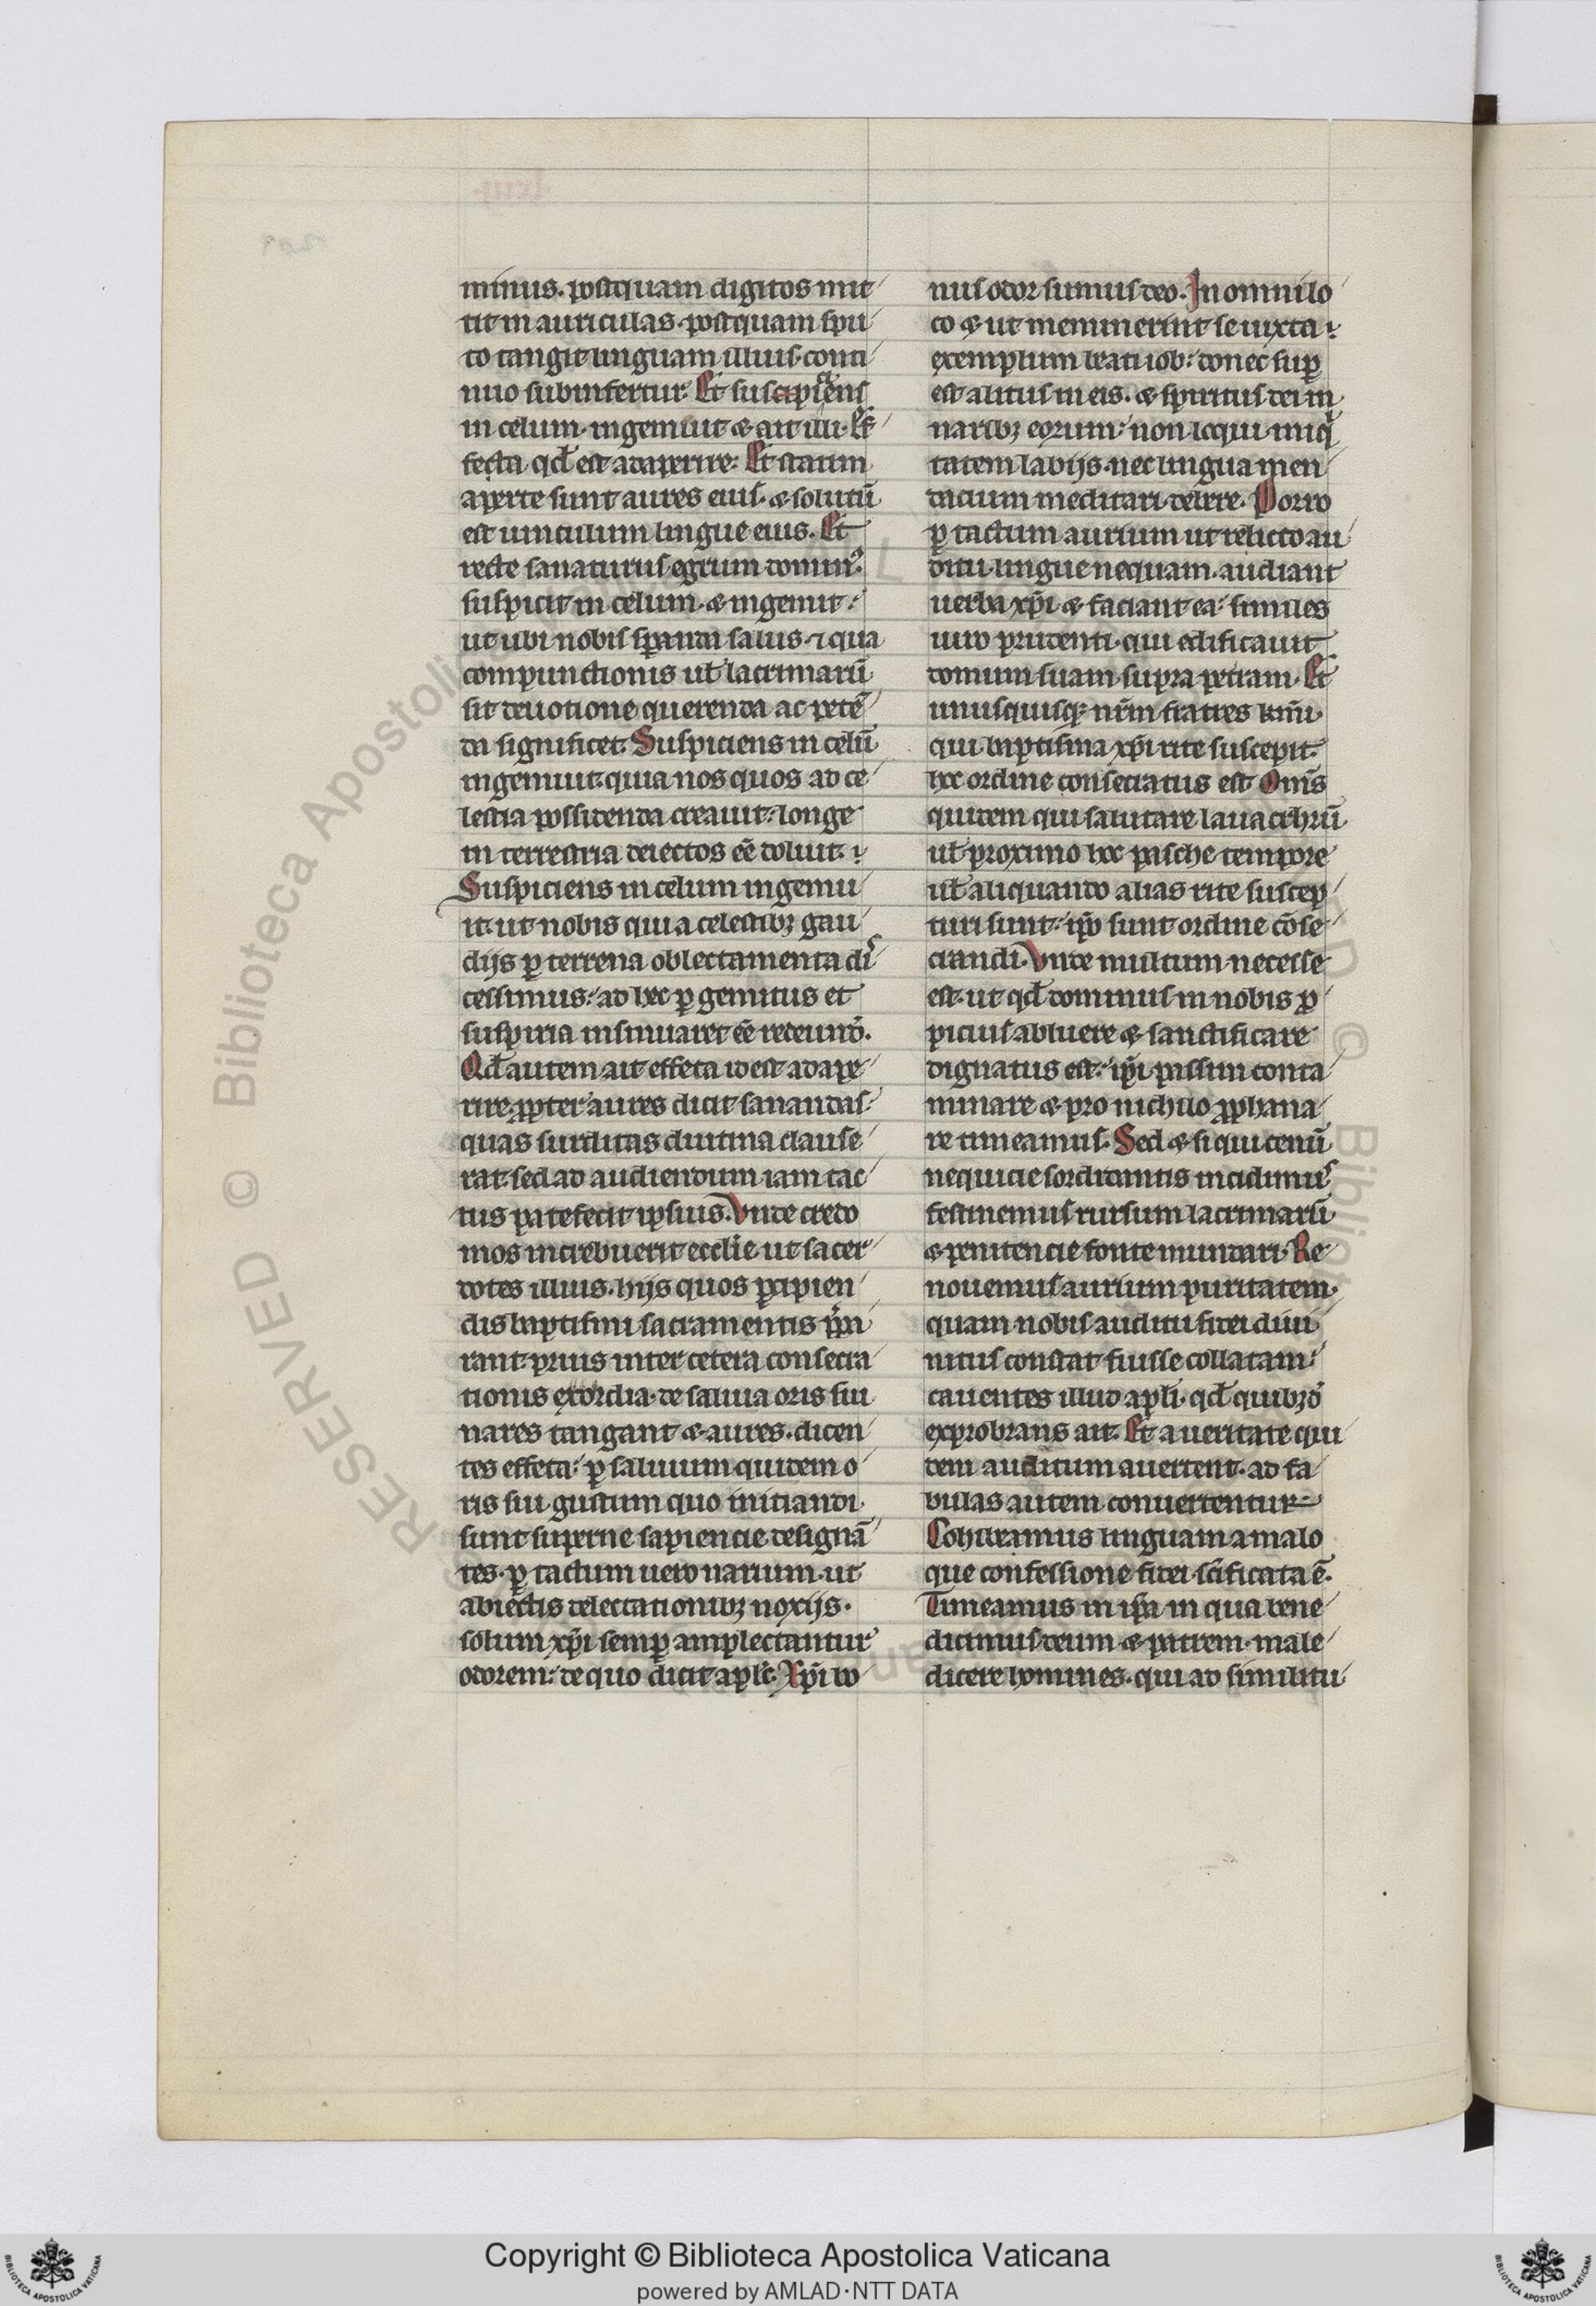 minus. postquam digitos mit
tit in auriculas. postquam spu
to tangit linguam illius. conti
nuo subinfertur. Et suscipiens
in celum. ingemuit & ait illi. Ef
fecta qd̛ est adaperire. Et statim
aperte sunt aures eius. & solutū
est uinculum lingue eius. Et
recte sanaturus egrum domin᷒
suspicit in celum. & ingemit.
ut ubi nobis sꝑanda salus. ⁊ qua
compunctionis ul̛ lacrimarū
sit deuotione querenda ac petē
da significet. Suspiciens in celū
ingemuit. quia nos quos ad ce
lestia possidenda creauit. longe
in terrestria deiectos eē doluit.
Suspiciens in celum ingemu
it. ut nobis qui a celestibꝫ gau
dijs ꝑ terrena oblectamenta dis
cessimus. ad hec ꝑ gemitus et
suspiria insinuaret eē redeund̄.
Qd̛ autem ait effeta id est adape
rire. ꝓpter aures dicit sanandas.
quas surditas diutina clause
rat. sed ad audiendum iam tac
tus patefecit ipsius. Vnde credo
mos increbuerit ecclie ut sacer
dotes illius. hijs quos ꝑcipien
dis baptismi sacramentis p̄pa
rant. prius inter cetera consecra
tionis exordia. de saliua oris sui
nares tangant & aures. dicen
tes effeta. ꝑ saliuum quidem o
ris sui gustum quo initiandi
sunt superne sapiencie designā
tes. ꝑ tactum uero narium. ut
abiectis delectationibꝫ noxijs.
solum xp̄i semꝑ amplectantur
odorem. de quo dicit apl̄c. Xp̄i bo
nus odor sumus deo. In omni lo
co & ut meminerint se iuxta
exemplum beati iob. donec suꝑ
est alitus in eis. & spiritus dei in
naribꝫ eorum. non loqui iniq̇
tatem labijs. nec lingua men
dacium meditari debere. Porro
ꝑ tactum aurium ut relicto au
ditu lingue nequam. audiant
uerba xp̄i & faciant ea. similes
uiro prudenti. qui edificauit
domum suam supra petram. Et
unusquisqꝫ nr̄m fratres kmi
qui baptisma xp̄i rite suscepit.
hoc ordine consecratus est. Omīs
quidem qui salutare lauachrū
ul̛ proximo hoc pasche tempore
ul̛ aliquando alias rite suscep
turi sunt. ip̄o sunt ordine cōse
crandi. Vnde multum necesse
est. ut qd̛ dominus in nobis ꝓ
picius abluere & sanctificare
dignatus est. ip̄i passim conta
minare & pro nichilo ꝓphana
re timeamus. Sed & si qui cenū
nequicie sordidantis incidimus
festinemus rursum lacrimarū
& penitencie fonte mundari. Re
nouemus aurium puritatem.
quam nobis auditu fidei diui
nitus constat fuisse collatam.
cauentes illud apl̄i. qd̛ quibꝫd̄
exprobrans ait. Et a ueritate qui
dem auditum auertent. ad fa
bulas autem conuertentur
Cohibeamus linguam a malo
que confessione fidei scīficata ē.
Timeamus in ip̄a in qua bene
dicimus deum & patrem. male
dicere homines. qui ad similitu
Copyright © Biblioteca Apostolica Vaticana
powered by AMLAD·NTT DATA